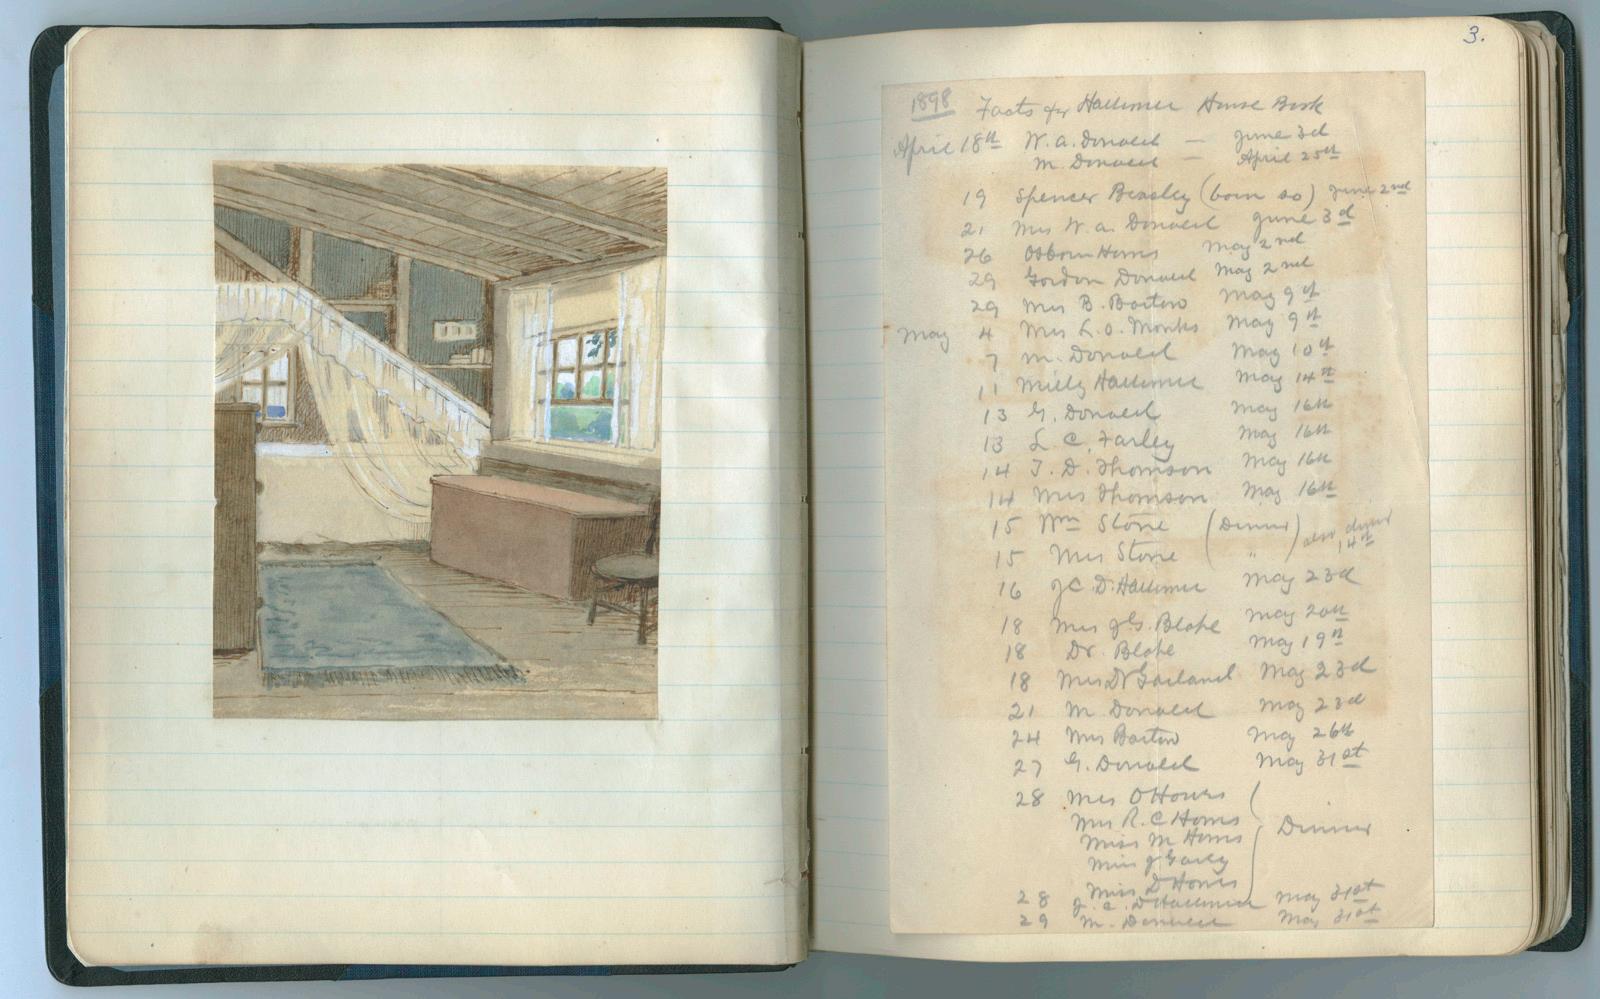 3.
1898 Facts for Hallimer House Book
April 18th W. A. Donald — June 3d
M. Donald — April 25th
19 Spencer Beasley (born so) June 2nd
21 Mrs W. A. Donald June 3d
26 Osborn Homs May 2nd
29 Gordon Donald May 2nd
29 Mrs B. Barton May 9th
May 4 Mrs L. O. Monks May 9th
7 M. Donald May 10th
11 Milly Hallimer May 14th
13 G. Donald May 16th
13 L. C. Farley May 16th
14 T. D. Thomson May 16th
14 Mrs Thomson May 16th
15 Wm Stone (Dinner) also dinner
15 Mrs Stone " 14th
16 J C. D. Hallimer May 23d
18 Mrs J G. Blake May 20th
18 Dr. Blake May 19th
18 Mrs Garland May 23d
21 M. Donald May 23d
24 Mrs Barton May 26th
27 G. Donald May 31st
28 Mrs O Homs
Mrs R. C Homs Dinner
Miss M Homs
Miss J
Miss D Homs
28 J. C. D Hallimer May 31st
29 M. Donald May 31st